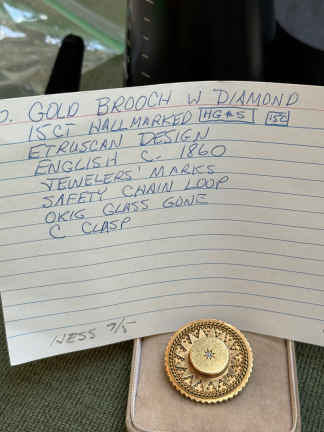 GOLD BROOCH W DIAMOND
15CT HALLMARKED HG&S 15C
ETRUSCAN DESIGN
ENGLISH C. 1860
JEWELERS' MARKS
SAFETY CHAIN LOOP
ORIG GLASS GONE
C CLASP
NESS 9/5